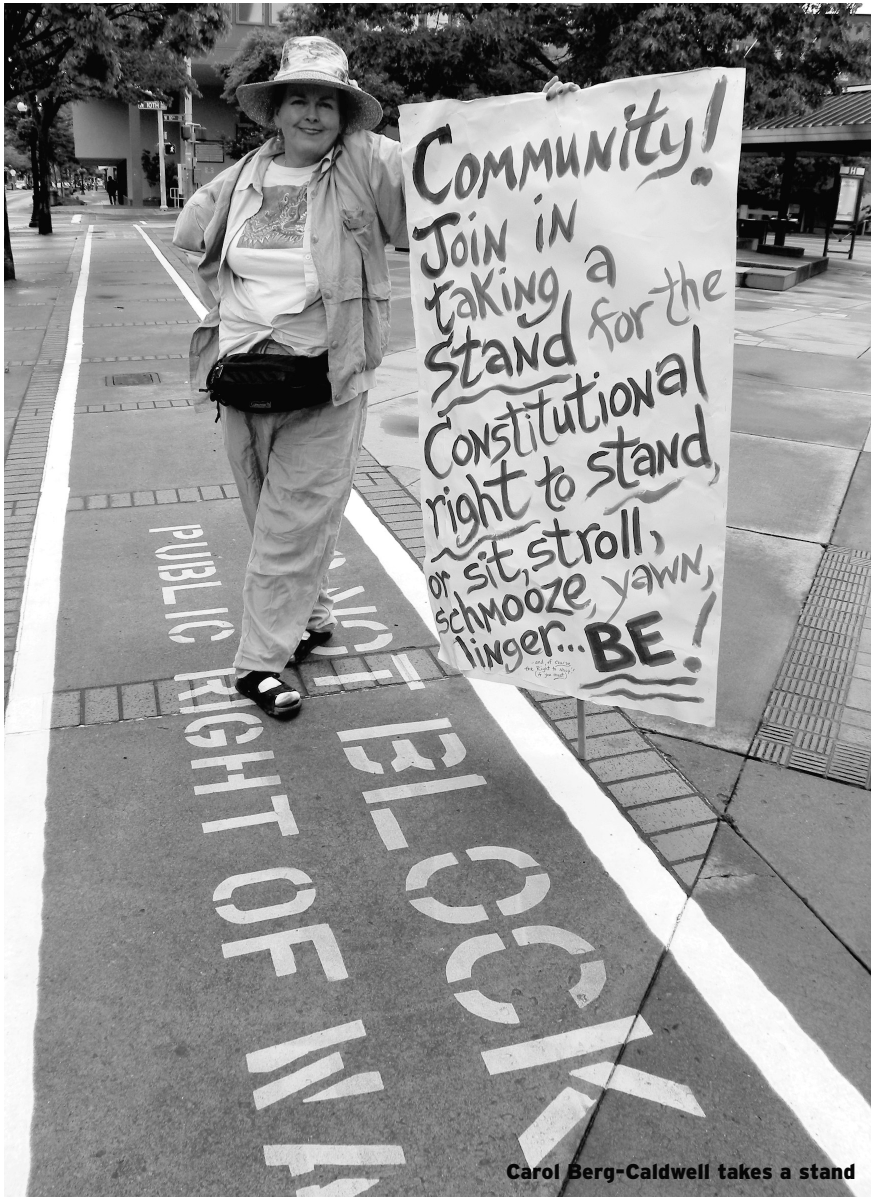 Community!
Join in
taking a
stand for the
Constitutional
right to stand,
or sit, stroll,
schmooze, yawn,
linger... BE!
and, of course
the Right to sleep
PUBLIC RIGHT OF WA
NOT BLOCK
10TH
Carol Berg-Caldwell takes a stand